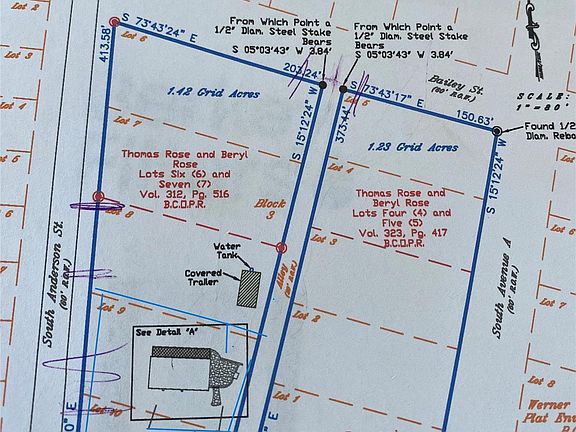 From Which Point a
1/2" Diam. Steel Stake
Bears
S 05°03'43" W 3.84'
From Which Point a
1/2" Diam. Steel Stake
Bears
S 05°03'43" W 3.84'
S 73°43'24" E
202.24'
413.58'
Lot 6
Block 2
Lot 3
Lot 4
1.42 Grid Acres
S 15°12'24" W
373.44'
Lot 5
S 73°43'17" E
150.63'
Bailey St.
(80' R.O.W.)
SCALE:
1"=80'
Found 1/2
Diam. Reba
1.23 Grid Acres
S 15°12'24" W
Lot 7
Thomas Rose and Beryl
Rose
Lots Six (6) and
Seven (7)
Vol. 312, Pg. 516
B.C.O.P.R.
Lot 4
Thomas Rose and
Beryl Rose
Lots Four (4) and
Five (5)
Vol. 323, Pg. 417
B.C.O.P.R.
Block
3
Lot 8
Lot 3
Water
Tank
Covered
Trailer
Alley
South Anderson St.
(80' R.O.W.)
South Avenue A
(80' R.O.W.)
Lot 7
Lot 9
Lot 2
See Detail "A"
Lot 1
Lot 8
Lot 10
0" E
Werner
Plat En